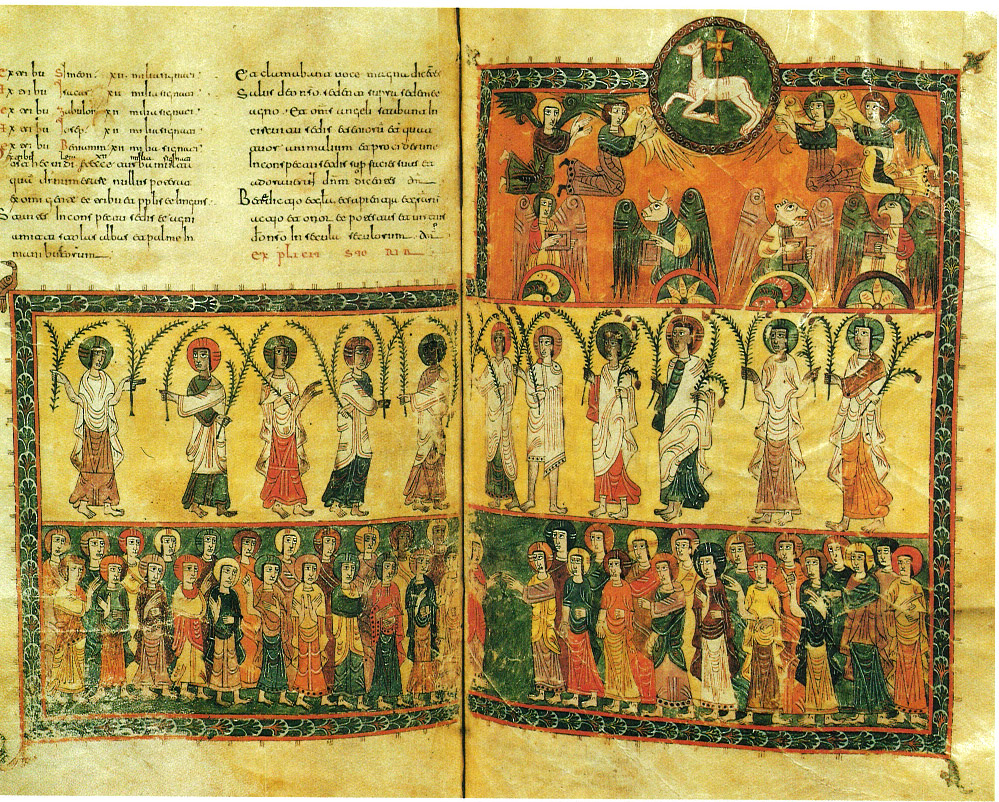 Ex tribu Simeon. XII milia signati
Ex tribu Isacar XII milia signati
ex tribu Zabulon XII milia signati
Ex tribu Iosep. XII milia signati
ex tribu Beniamin XII milia signati
ex tribu Leui XII milia signata
ost hec uidi et ecce turba multa
qua dinumerare nullus poterat
ex omi gente et tribu et pplis et linguis.
Stantes in conspectu sedis et agni
amicti stolas albas et palme in
manibus eorum
Et clamabant uoce magna dicētes
Salus deo nso sedenti supra sedem et
agno. Et oms angeli stabant in
circuitu sedis et seniorum et quat
tuor animalium et prociderunt
in conspectu sedis sup facies suas et
adoraberunt dnm dicētes
et sapientia et
actio et onor et potestas et uirtus
do nso in secula seculorum.
explicit